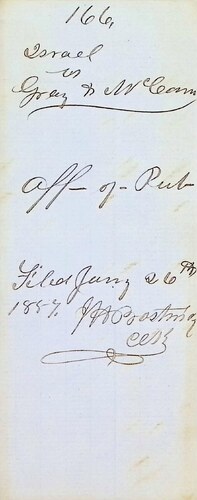 166,
Israel
vs
Gray & McCann
Aff - of - Pub
Filed Jany 26th
1857.
Clk